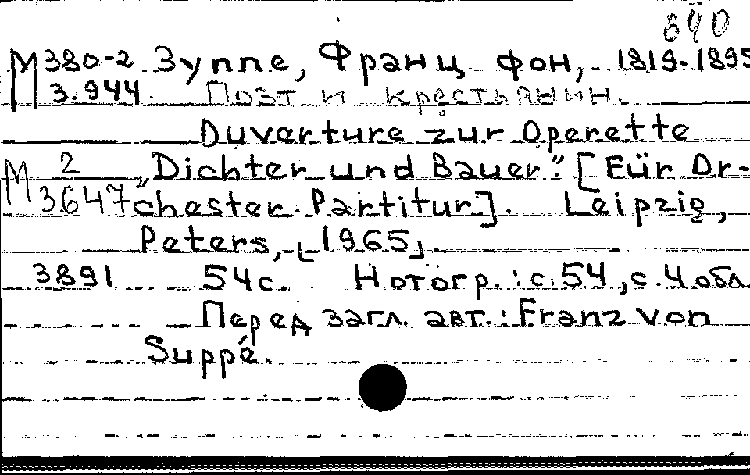 840
М 380-2 Зуппе, Франц фон, 1819-1895
3.944 Поэт и крестьянин.
Ouverture zur Operette
М 2 „Dichter und Bauer". [Für Or-
3647 chester. Partitur]. Leipzig,
Peters, [1965].
3891 54 с. Нотогр.: с. 54, с. 4 обл.
Перед загл. авт.: Franz von
Suppé.